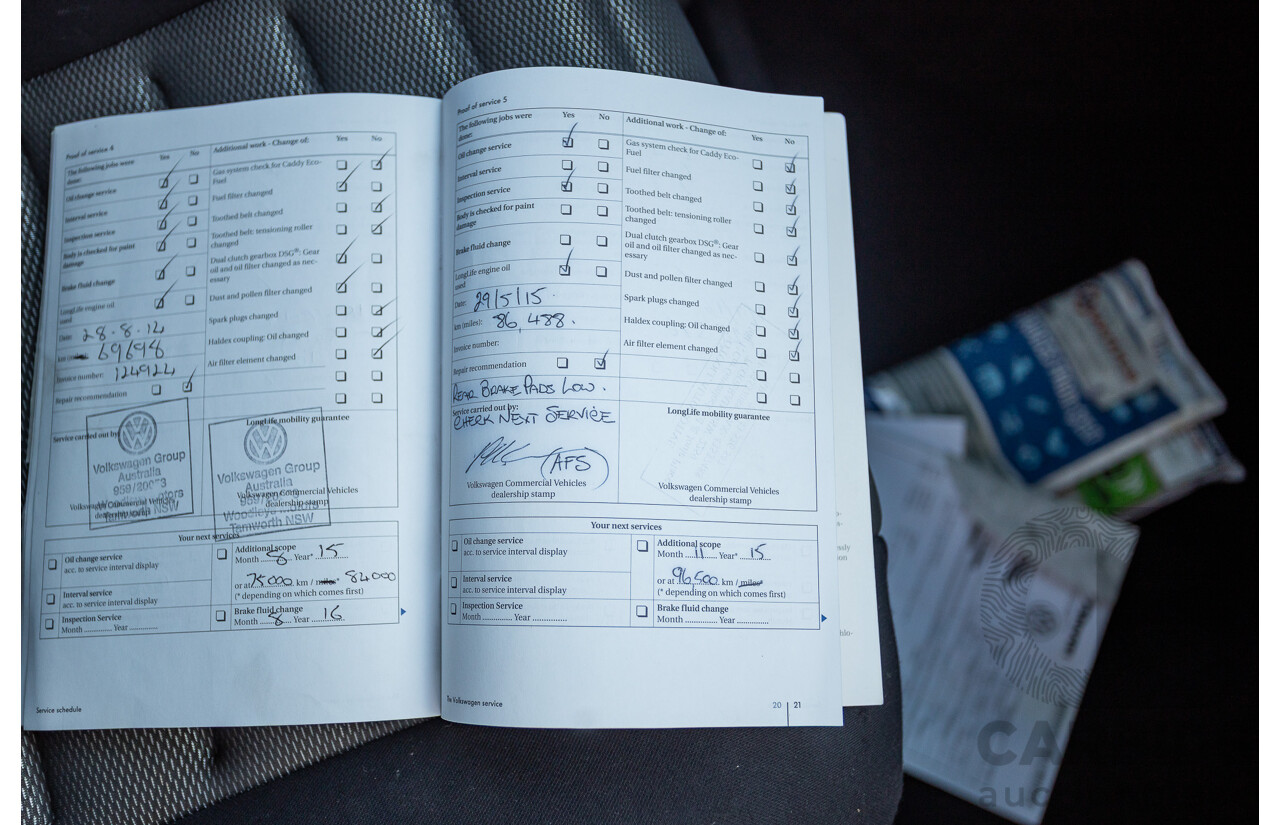 Proof of service 4
The following jobs were done:
Yes
No
Additional work - Change of:
Yes
No
Oil change service
Interval service
Inspection service
Body is checked for paint damage
Brake fluid change
LongLife engine oil used
Date: 28.8.14
km (miles): 69698
Invoice number: 124924
Repair recommendation
Gas system check for Caddy Eco-
Fuel
Fuel filter changed
Toothed belt changed
Toothed belt: tensioning roller
changed
Dual clutch gearbox DSG®: Gear
oil and oil filter changed as nec-
essary
Dust and pollen filter changed
Spark plugs changed
Haldex coupling: Oil changed
Air filter element changed
Service carried out by:
LongLife mobility guarantee
Volkswagen Group
Australia
Tamworth NSW
Volkswagen Commercial Vehicles
dealership stamp
Volkswagen Group
Tamworth NSW
Volkswagen Commercial Vehicles
dealership stamp
Your next services
Oil change service
acc. to service interval display
Interval service
acc. to service interval display
Inspection Service
Month ............ Year ............
Additional scope
Month 8 Year* 15
or at 75000 km / miles* 84000
(* depending on which comes first)
Brake fluid change
Month 8 Year 16
Service schedule
Proof of service 5
The following jobs were
done:
Yes
No
Additional work - Change of:
Yes
No
Oil change service
Interval service
Inspection service
Body is checked for paint
damage
Brake fluid change
LongLife engine oil
used
Date: 29/5/15.
km (miles): 86,488.
Invoice number:
Repair recommendation
REAR BRAKE PADS LOW.
Service carried out by:
CHECK NEXT SERVICE
AFS
Volkswagen Commercial Vehicles
dealership stamp
Gas system check for Caddy Eco-
Fuel
Fuel filter changed
Toothed belt changed
Toothed belt: tensioning roller
changed
Dual clutch gearbox DSG®: Gear
oil and oil filter changed as nec-
essary
Dust and pollen filter changed
Spark plugs changed
Haldex coupling: Oil changed
Air filter element changed
LongLife mobility guarantee
Volkswagen Commercial Vehicles
dealership stamp
Your next services
Oil change service
acc. to service interval display
Interval service
acc. to service interval display
Inspection Service
Month ............ Year ..............
Additional scope
Month 11 Year* 15
or at 96500 km / miles*
(* depending on which comes first)
Brake fluid change
Month ............ Year ............
The Volkswagen service
20 | 21